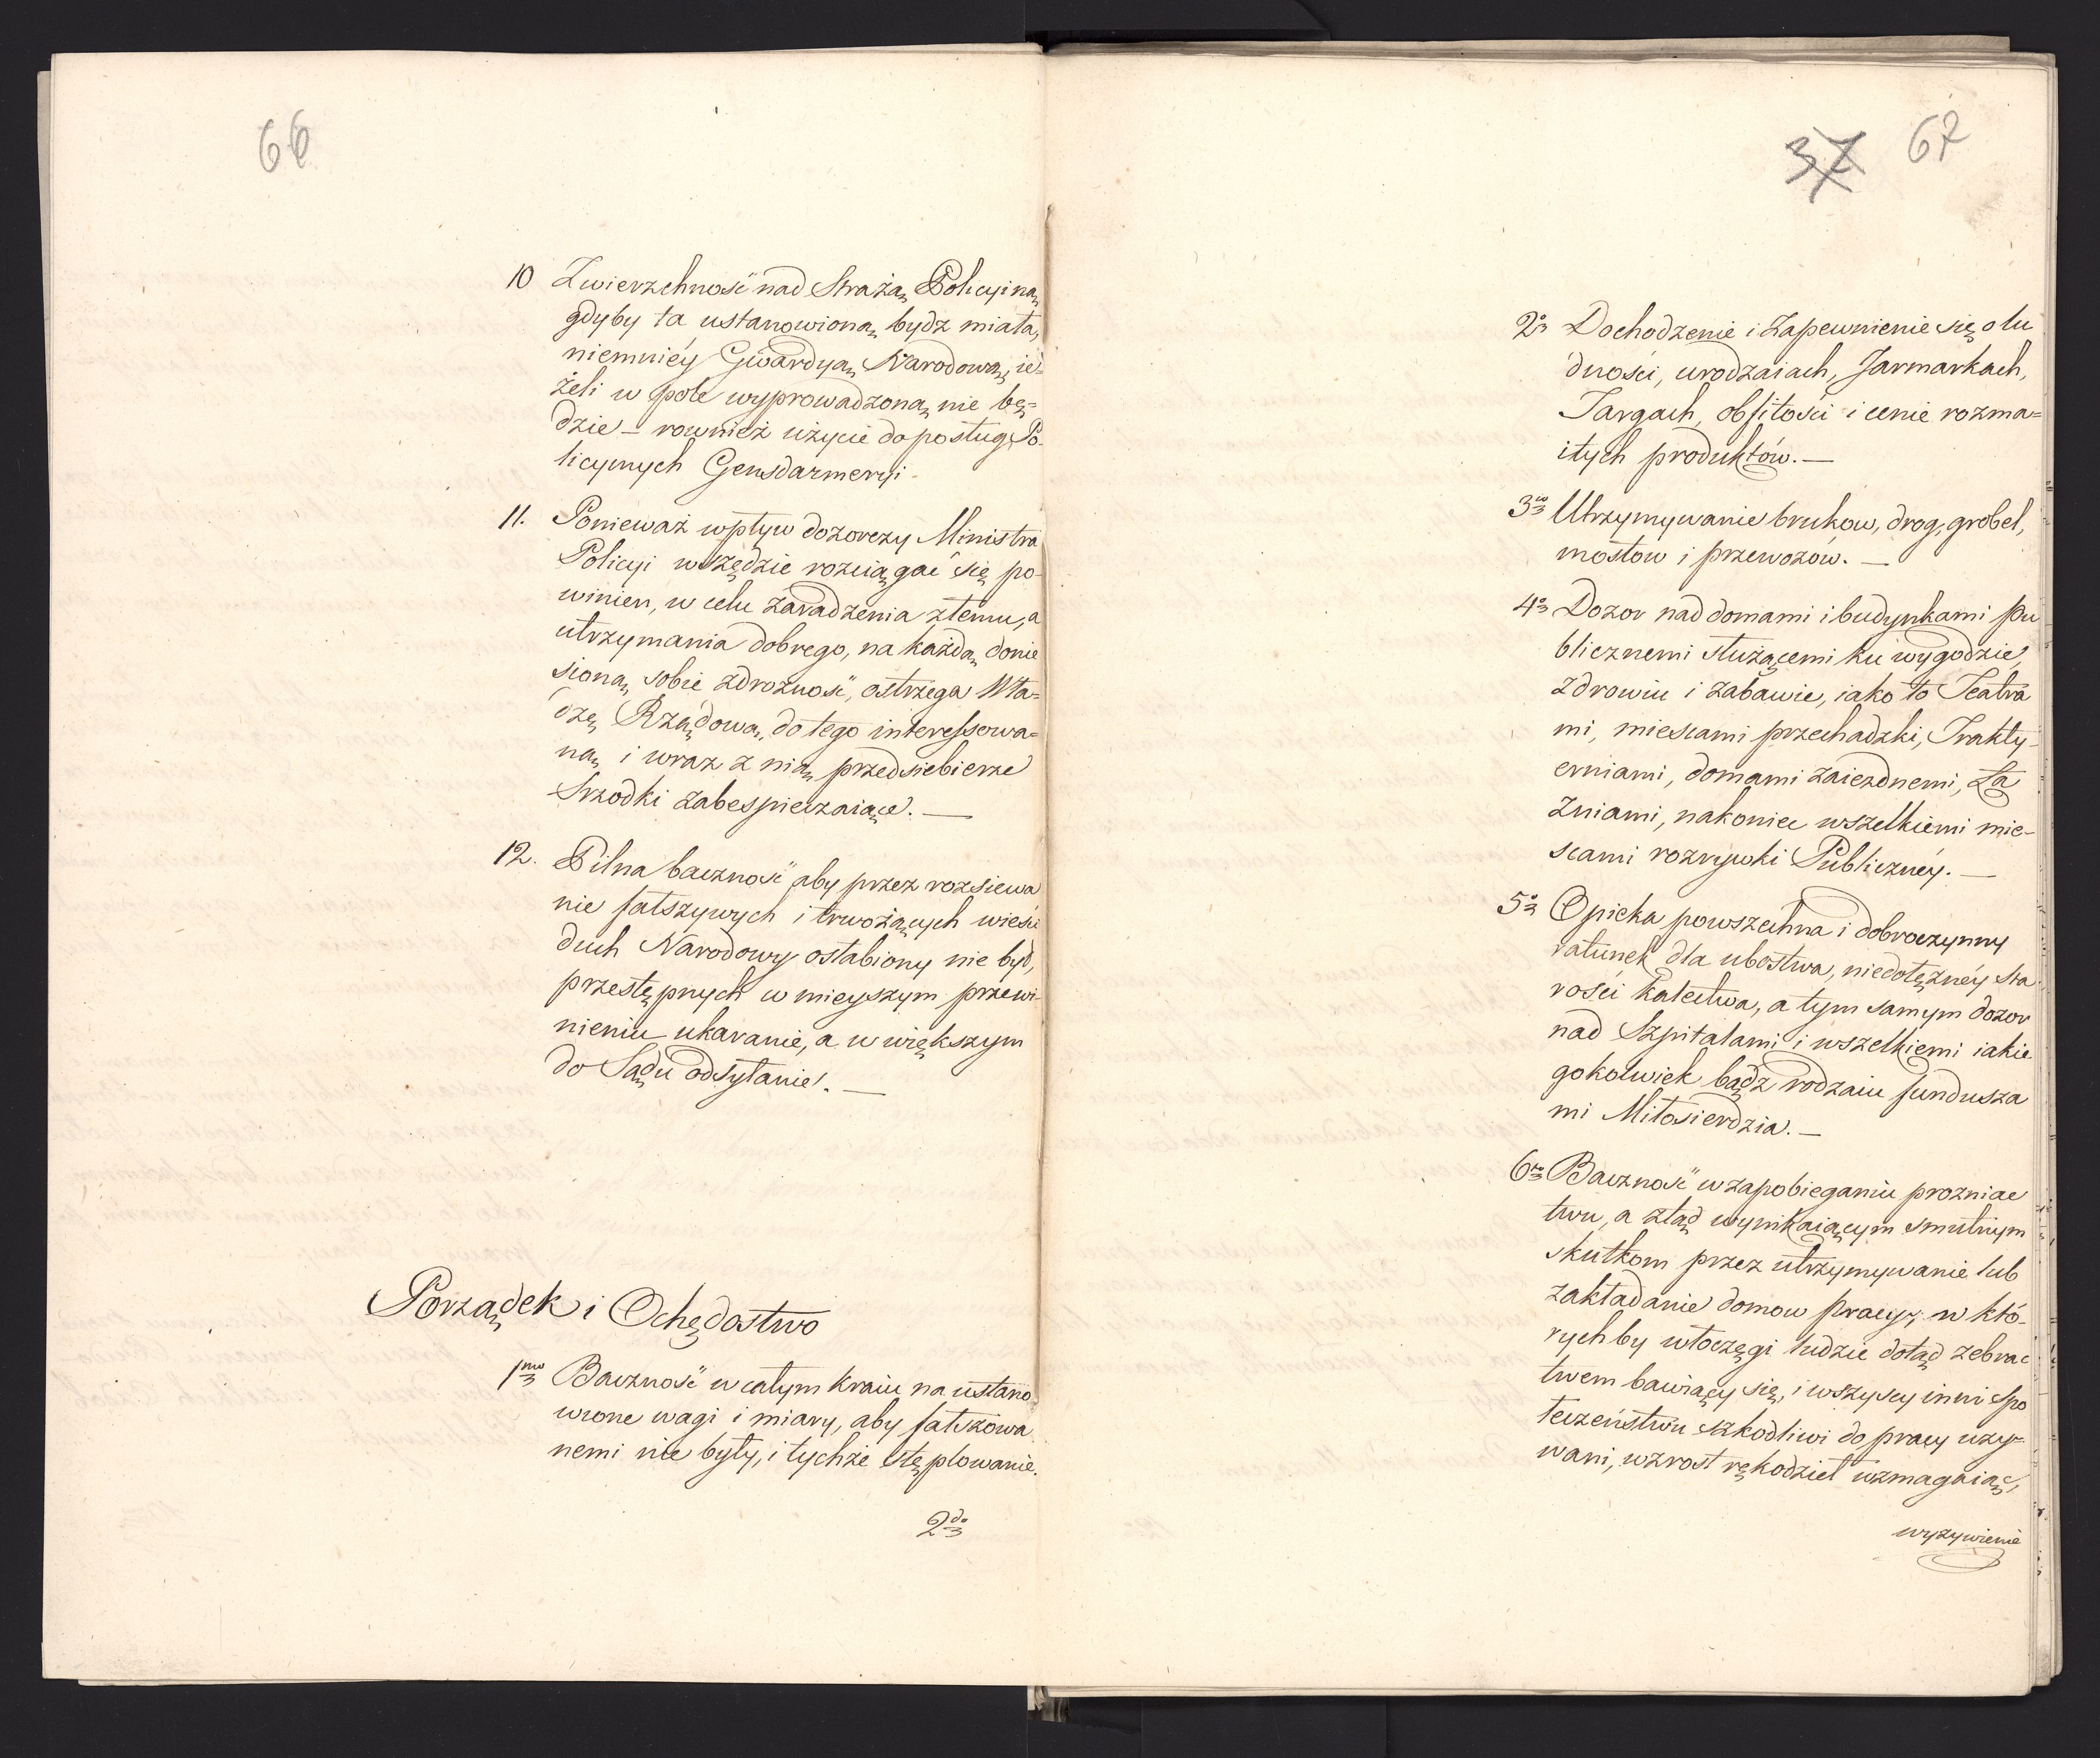 66
10 Zwierzchność nad Strażą Policyiną
gdyby ta ustanowioną bydz miała,
niemniéy Gwardyą Narodową, ie=
żeli w pole wyprowadzoną nie bę=
dzie — rownież użycie do posług Po-
licyinych Gensdarmeryi
11. Ponieważ wpływ dozorczy Ministra
Policyi wszędzie rozciągać się po-
winien, w celu zaradzenia złemu, a
utrzymania dobrego, na każdą donie
sioną sobie zdrożność, ostrzega Wła=
dzę Rządową, do tego interessowa=
ną i wraz z nią przedsiebierze
Srzodki zabespieczaiące. —
12. Pilna baczność aby przez rozsiewa
nie fałszywych i trwożących wieści
duch Narodowy osłabiony nie był,
przestępnych w mieyszym przewi-
nieniu ukaranie, a w większym
do Sądu odsyłanie. —
Porządek i Ochędostwo
1mo Baczność w całym kraiu na ustano
wione wagi i miary, aby fałszowa
nemi nie były, i tychże stęplowanie.
2do
37 67
2o Dochodzenie i Zapewnienie się o lu
dności, urodzaiach, Jarmarkach,
Targach, obfitości i cenie rozma=
itych produktów. —
3io Utrzymywanie brukow, drog, grobel,
mostow i przewozów. —
4o Dozor nad domami i budynkami pu
blicznemi służącemi ku wygodzie,
zdrowiu i zabawie, iako to Teatra
mi, miescami przechadzki, Trakty-
erniami, domami zaiezdnemi, Ła
zniami, nakoniec wszelkiemi mie-
scami rozrywki Publicznéy. —
5o Opieka powszechna i dobroczynny
ratunek dla ubostwa, niedołężnéy sta
rości kalectwa, a tym samym dozor
nad Szpitalami i wszelkiemi iakie
gokolwiek bądz rodzaiu fundusza
mi Miłosierdzia. —
6to Baczność w zapobieganiu prozniac
twu, a ztąd wynikaiącym smutnym
skutkom przez utrzymywanie lub
zakładanie domow pracy, w któ-
rychby włoczęgi ludzie dotąd zebrac
twem bawiący się, i wszyscy inni spo
łeczeństwu szkodliwi do pracy uzy=
wani, wzrost rękodzieł wzmagaiąc,
wyzywienie